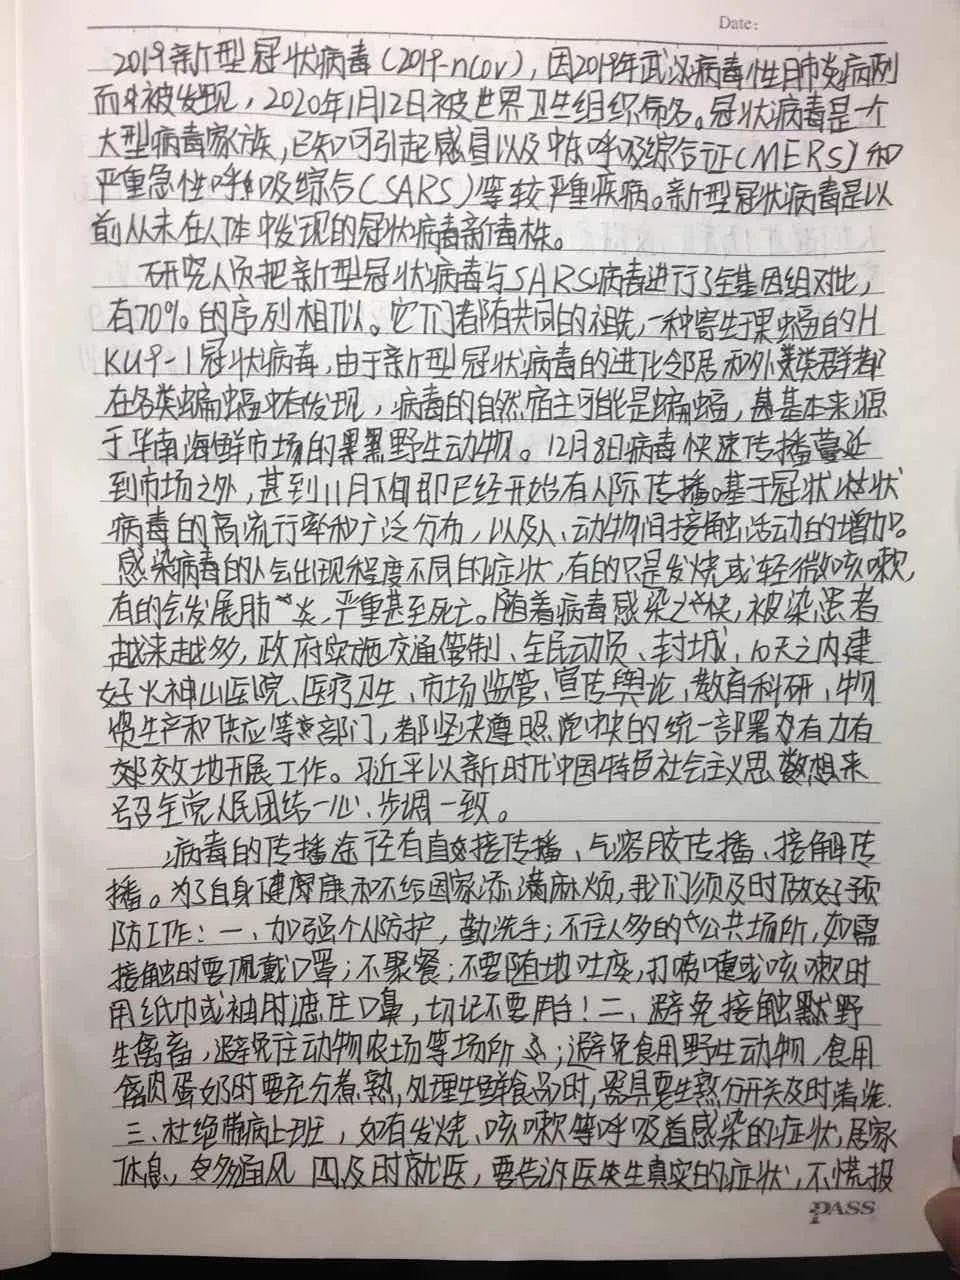 Date:
2019新型冠状病毒(2019-nCov),因2019年武汉病毒性肺炎病例
而被发现,2020年1月12日被世界卫生组织命名。冠状病毒是一个
大型病毒家族,已知可引起感冒以及中东呼吸综合证(MERS)和
严重急性呼吸综合(SARS)等较严重疾病。新型冠状病毒是以
前从未在人体中发现的冠状病毒新毒株。
研究人员把新型冠状病毒与SARS病毒进行了全基因组对比,
有70%的序列相似。它们都有共同的祖先,一种寄生于果蝠的H
KU9-1冠状病毒,由于新型冠状病毒的进化邻居和外类群都
在各类蝙蝠中有发现,病毒的自然宿主可能是蝙蝠,基本来源
于华南海鲜市场的野生动物。12月8日病毒快速传播蔓延
到市场之外,甚到11月下旬即已经开始有人际传播。基于冠状
病毒的高流行率和广泛分布,以及人、动物间接触活动的增加。
感染病毒的人会出现程度不同的症状,有的只是发烧或轻微咳嗽,
有的会发展肺炎,严重甚至死亡。随着病毒感染之快,被染患者
越来越多,政府实施交通管制、全民动员、封城、10天之内建
好火神山医院、医疗卫生、市场监管、宣传舆论、教育科研、物
资生产和供应等部门,都坚决遵照党中央的统一部署有力有
效地开展工作。习近平以新时代中国特色社会主义思想来
号召全党人民团结一心、步调一致。
病毒的传播途径有直接传播、气溶胶传播、接触传
播。为了自身健康和不给国家添满麻烦,我们须及时做好预
防工作:一、加强个人防护,勤洗手;不往人多的公共场所,如需
接触时要佩戴口罩;不聚餐;不要随地吐痰,打喷嚏或咳嗽时
用纸巾或袖肘遮住口鼻,切记不要用手!二、避免接触野
生禽畜,避免往动物农场等场所;避免食用野生动物,食用
禽肉蛋奶时要充分煮熟,处理生鲜食品时,器具要生熟分开及时清洗.
三、杜绝带病上班,如有发烧、咳嗽等呼吸道感染的症状,居家
休息,多通风 四及时就医,要告诉医生真实的症状,不慌报
PASS